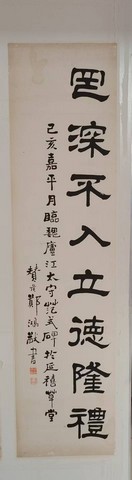 罔深不入立德隆禮
己亥嘉平月臨魏廬江太守范式碑於延禧草堂
贊廷鄭鴻猷書